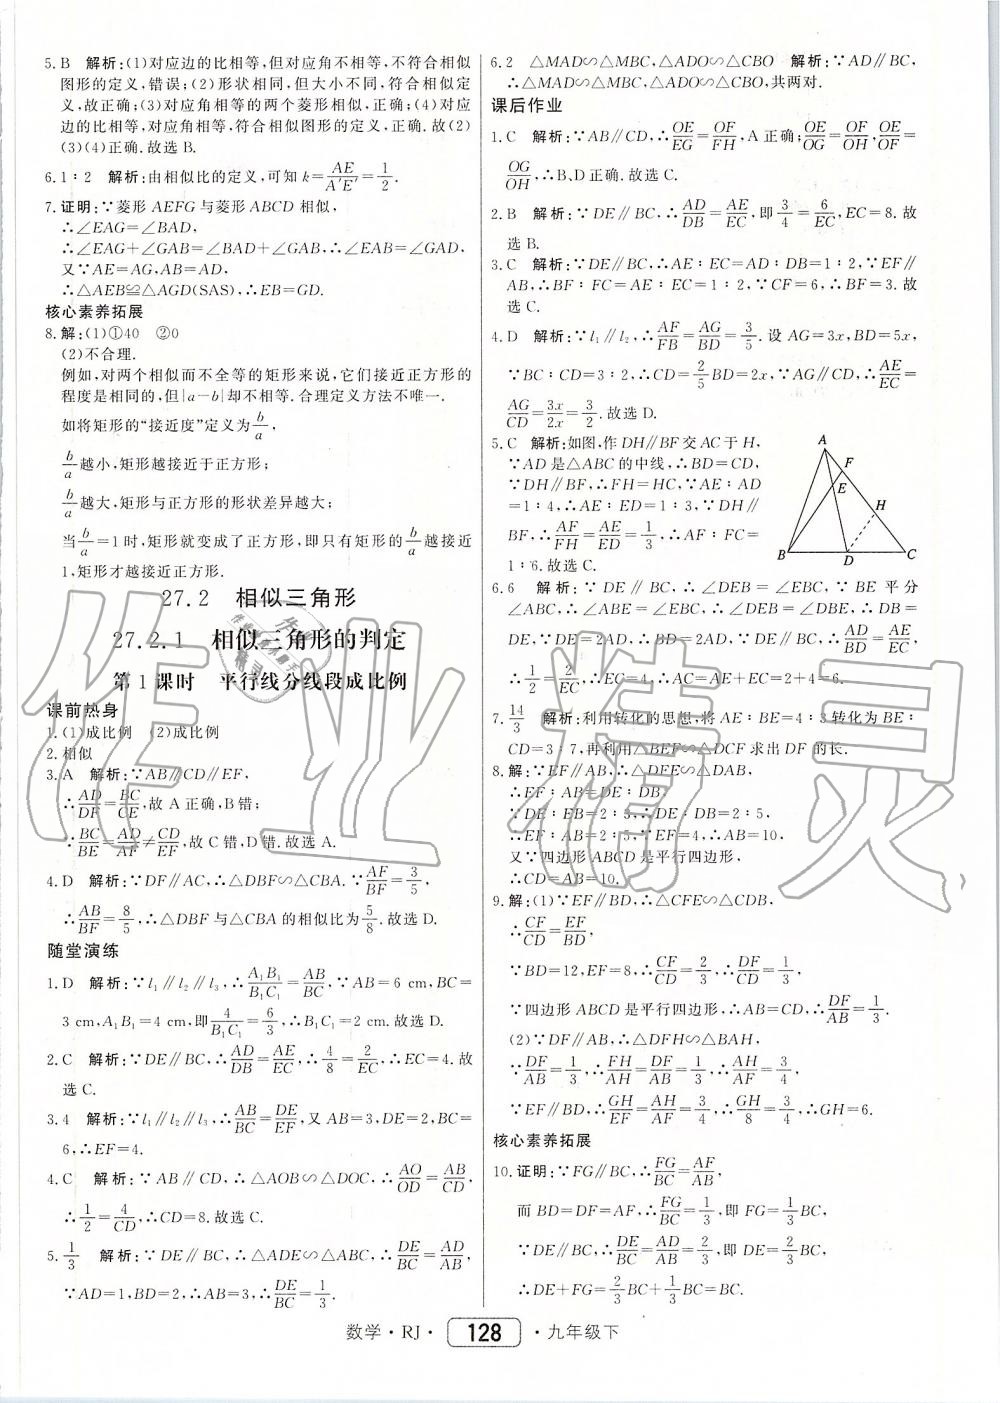 5.B 解析:(1)对应边的比相等,但对应角不相等,不符合相似
图形的定义,错误;(2)形状相同,但大小不同,符合相似定
义,故正确;(3)对应角相等的两个菱形相似,正确;(4)对应
边的比相等,对应角相等.符合相似图形的定义,正确.故(2)
(3)(4)正确.故选 B.
6.1∶2 解析:由相似比的定义,可知 k=AE/A′E′=1/2.
7.证明:∵菱形 AEFG 与菱形 ABCD 相似,
∴∠EAG=∠BAD,
∴∠EAG+∠GAB=∠BAD+∠GAB,∴∠EAB=∠GAD,
又∵AE=AG,AB=AD,
∴△AEB≌△AGD(SAS),∴EB=GD.
核心素养拓展
8.解:(1)①40 ②0
(2)不合理.
例如,对两个相似而不全等的矩形来说,它们接近正方形的
程度是相同的,但|a-b|却不相等.合理定义方法不唯一.
如将矩形的“接近度”定义为b/a,
b/a越小,矩形越接近于正方形;
b/a越大,矩形与正方形的形状差异越大;
当b/a=1时,矩形就变成了正方形,即只有矩形的b/a越接近
1,矩形才越接近正方形.
27.2 相似三角形
27.2.1 相似三角形的判定
第1课时 平行线分线段成比例
课前热身
1.(1)成比例 (2)成比例
2.相似
3.A 解析:∵AB∥CD∥EF,
∴AD/DF=BC/CE,故 A 正确,B 错;
∵BC/BE=AD/AF≠CD/EF,故 C 错,D 错.故选 A.
4.D 解析:∵DF∥AC,∴△DBF∽△CBA.∵AF/BF=3/5,
∴AB/BF=8/5,∴△DBF 与△CBA 的相似比为5/8.故选 D.
随堂演练
1.D 解析:∵l₁∥l₂∥l₃,∴A₁B₁/B₁C₁=AB/BC,∵AB=6 cm,BC=
3 cm,A₁B₁=4 cm,即4/B₁C₁=6/3,∴B₁C₁=2 cm.故选 D.
2.C 解析:∵DE∥BC,∴AD/DB=AE/EC,∴4/8=2/EC,∴EC=4.故
选 C.
3.4 解析:∵l₁∥l₂∥l₃,∴AB/BC=DE/EF,又 AB=3,DE=2,BC=
6,∴EF=4.
4.C 解析:∵AB∥CD,∴△AOB∽△DOC,∴AO/OD=AB/CD,
∴1/2=4/CD,∴CD=8.故选 C.
5.1/3 解析:∵DE∥BC,∴△ADE∽△ABC,∴DE/BC=AD/AB,
∵AD=1,BD=2,∴AB=3,∴DE/BC=1/3.
6.2 △MAD∽△MBC,△ADO∽△CBO 解析:∵AD∥BC,
∴△MAD∽△MBC,△ADO∽△CBO,共两对.
课后作业
1.C 解析:∵AB∥CD,∴OE/EG=OF/FH,A 正确;OE/OG=OF/OH,OE/OF=
OG/OH,∴B、D 正确.故选 C.
2.B 解析:∵DE∥BC,∴AD/DB=AE/EC,即3/4=6/EC,EC=8.故
选 B.
3.C 解析:∵DE∥BC,∴AE∶EC=AD∶DB=1∶2,∵EF∥
AB,∴BF∶FC=AE∶EC=1∶2,∵CF=6,∴BF=3.故选 C.
4.D 解析:∵l₁∥l₂,∴AF/FB=AG/BD=3/5.设 AG=3x,BD=5x,
∵BC∶CD=3∶2,∴CD=2/5BD=2x,∵AG∥CD,∴AE/EC=
AG/CD=3x/2x=3/2.故选 D.
5.C 解析:如图,作 DH∥BF 交 AC 于 H,
∵AD 是△ABC 的中线,∴BD=CD,
∵DH∥BF,∴FH=HC,∵AE∶AD
=1∶4,∴AE∶ED=1∶3,∵DH∥
BF,∴AF/FH=AE/ED=1/3,∴AF∶FC=
1∶6.故选 C.
A
F
E
H
B
D
C
6.6 解析:∵DE∥BC,∴∠DEB=∠EBC,∵BE 平分
∠ABC,∴∠ABE=∠EBC,∴∠DBE=∠DEB,∴DB=
DE,∵DE=2AD,∴BD=2AD,∵DE∥BC,∴AD/BD=AE/EC,
∴1/2=2/EC,∴EC=4,∴AC=AE+EC=2+4=6.
7.14/3 解析:利用转化的思想,将 AE∶BE=4∶3转化为 BE∶
CD=3∶7,再利用△BEF∽△DCF 求出 DF 的长.
8.解:∵EF∥AB,∴△DEF∽△DAB,
∴EF∶AB=DE∶DB,
∵DE∶EB=2∶3,∴DE∶DB=2∶5,
∴EF∶AB=2∶5,∵EF=4,∴AB=10,
又∵四边形 ABCD 是平行四边形,
∴CD=AB=10.
9.解:(1)∵EF∥BD,∴△CFE∽△CDB,
∴CF/CD=EF/BD,
∵BD=12,EF=8,∴CF/CD=2/3,∴DF/CD=1/3,
∵四边形 ABCD 是平行四边形,∴AB=CD,∴DF/AB=1/3.
(2)∵DF∥AB,∴△DFH∽△BAH,
∵DF/AB=1/3,∴FH/AH=DF/AB=1/3,∴AH/AF=3/4,
∵EF∥BD,∴GH/EF=AH/AF=3/4,∴GH/8=3/4,∴GH=6.
核心素养拓展
10.证明:∵FG∥BC,∴FG/BC=AF/AB,
而 BD=DF=AF,∴FG/BC=1/3,即 FG=1/3BC,
∵DE∥BC,∴DE/BC=AD/AB=2/3,即 DE=2/3BC,
∴DE+FG=2/3BC+1/3BC=BC.
数学·RJ· 128 ·九年级下
作业精灵